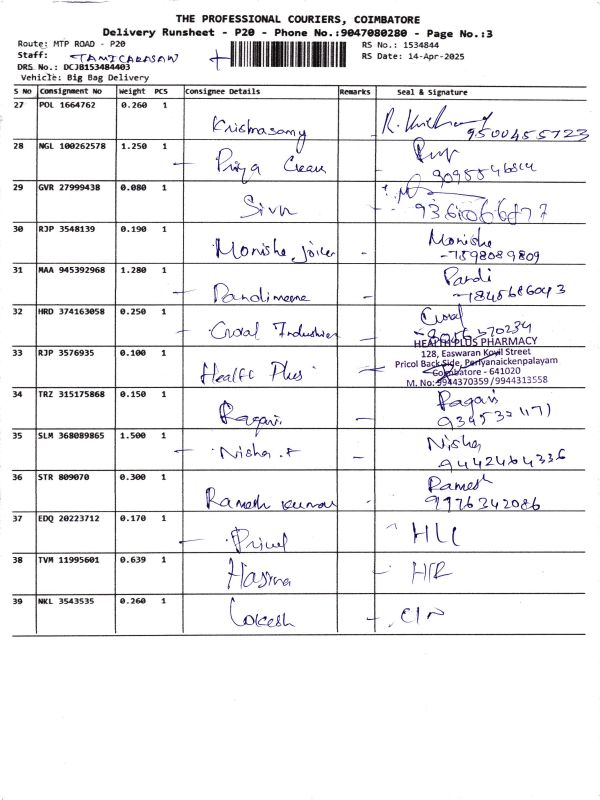 THE PROFESSIONAL COURIERS, COIMBATORE
Delivery Runsheet - P20 - Phone No.:9047080280 - Page No.:3
Route: MTP ROAD - P20
RS No.: 1534844
Staff: TAMICARASAN
RS Date: 14-Apr-2025
DRS No.: DCJB153484403
Vehicle: Big Bag Delivery
S No Consignment No Weight PCS Consignee Details Remarks Seal & Signature
27 POL 1664762 0.260 1 Krishnasamy 9500455723
28 NGL 100262578 1.250 1 Priya
29 GVR 27999438 0.080 1 Siva
30 RJP 3548139 0.190 1 Monisha Monisha
7598089809
31 MAA 945392968 1.280 1 Pandi
32 HRD 374163058 0.250 1 Croal Industries Croal
33 RJP 3576935 0.100 1 Health Plus
HEALTH PLUS PHARMACY
128, Easwaran Kovil Street
Pricol Back Side, Periyanaickenpalayam
Coimbatore - 641020
M. No: 9944370359 / 9944313558
34 TRZ 315175868 0.150 1 Ragavi Ragavi
35 SLM 368089865 1.500 1 Nisha Nisha
9442464336
36 STR 809070 0.300 1 Ramesh Kumar Ramesh
9976342086
37 EDQ 20223712 0.170 1 Pricol
38 TVM 11995601 0.639 1 Hasina H/R
39 NKL 3543535 0.260 1 Lokesh